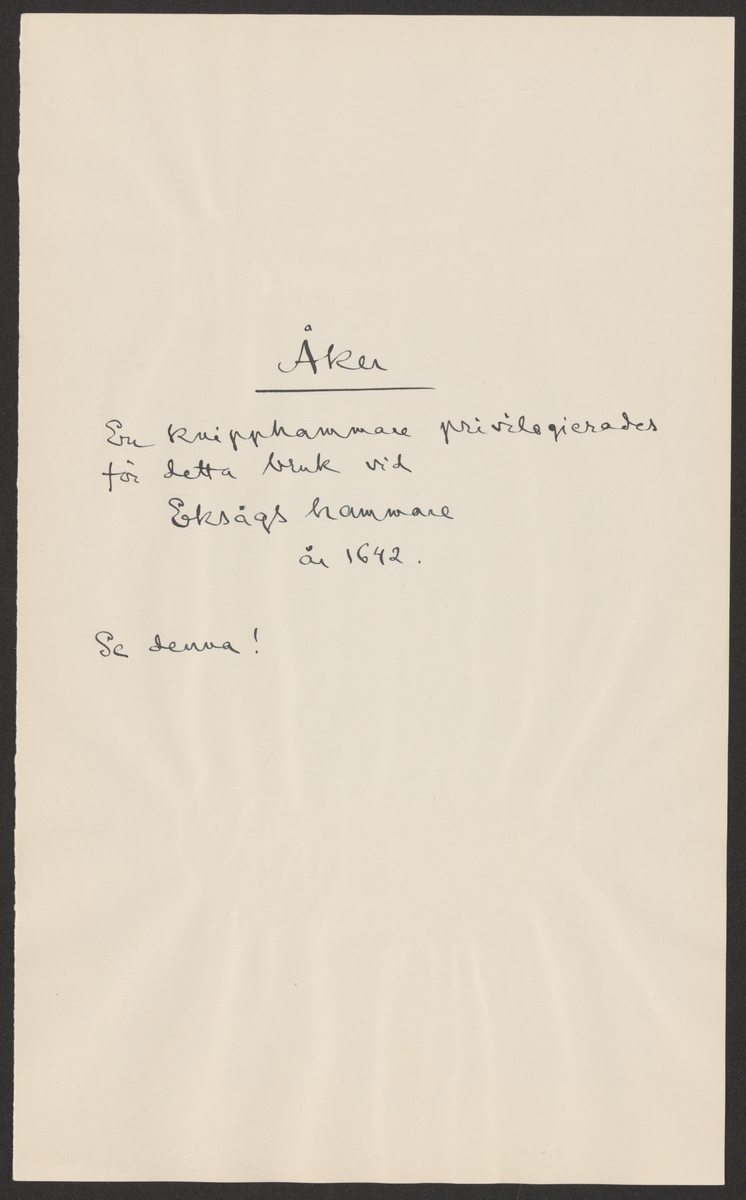 Åker
En knipphammare privilegierades
för detta bruk vid
Eksågs hammare
år 1642.
Se denna!